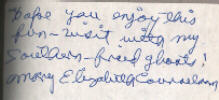 Hope you enjoy this
fun-visit with my
Southern-fried ghosts!
Mary Elizabeth Counselman